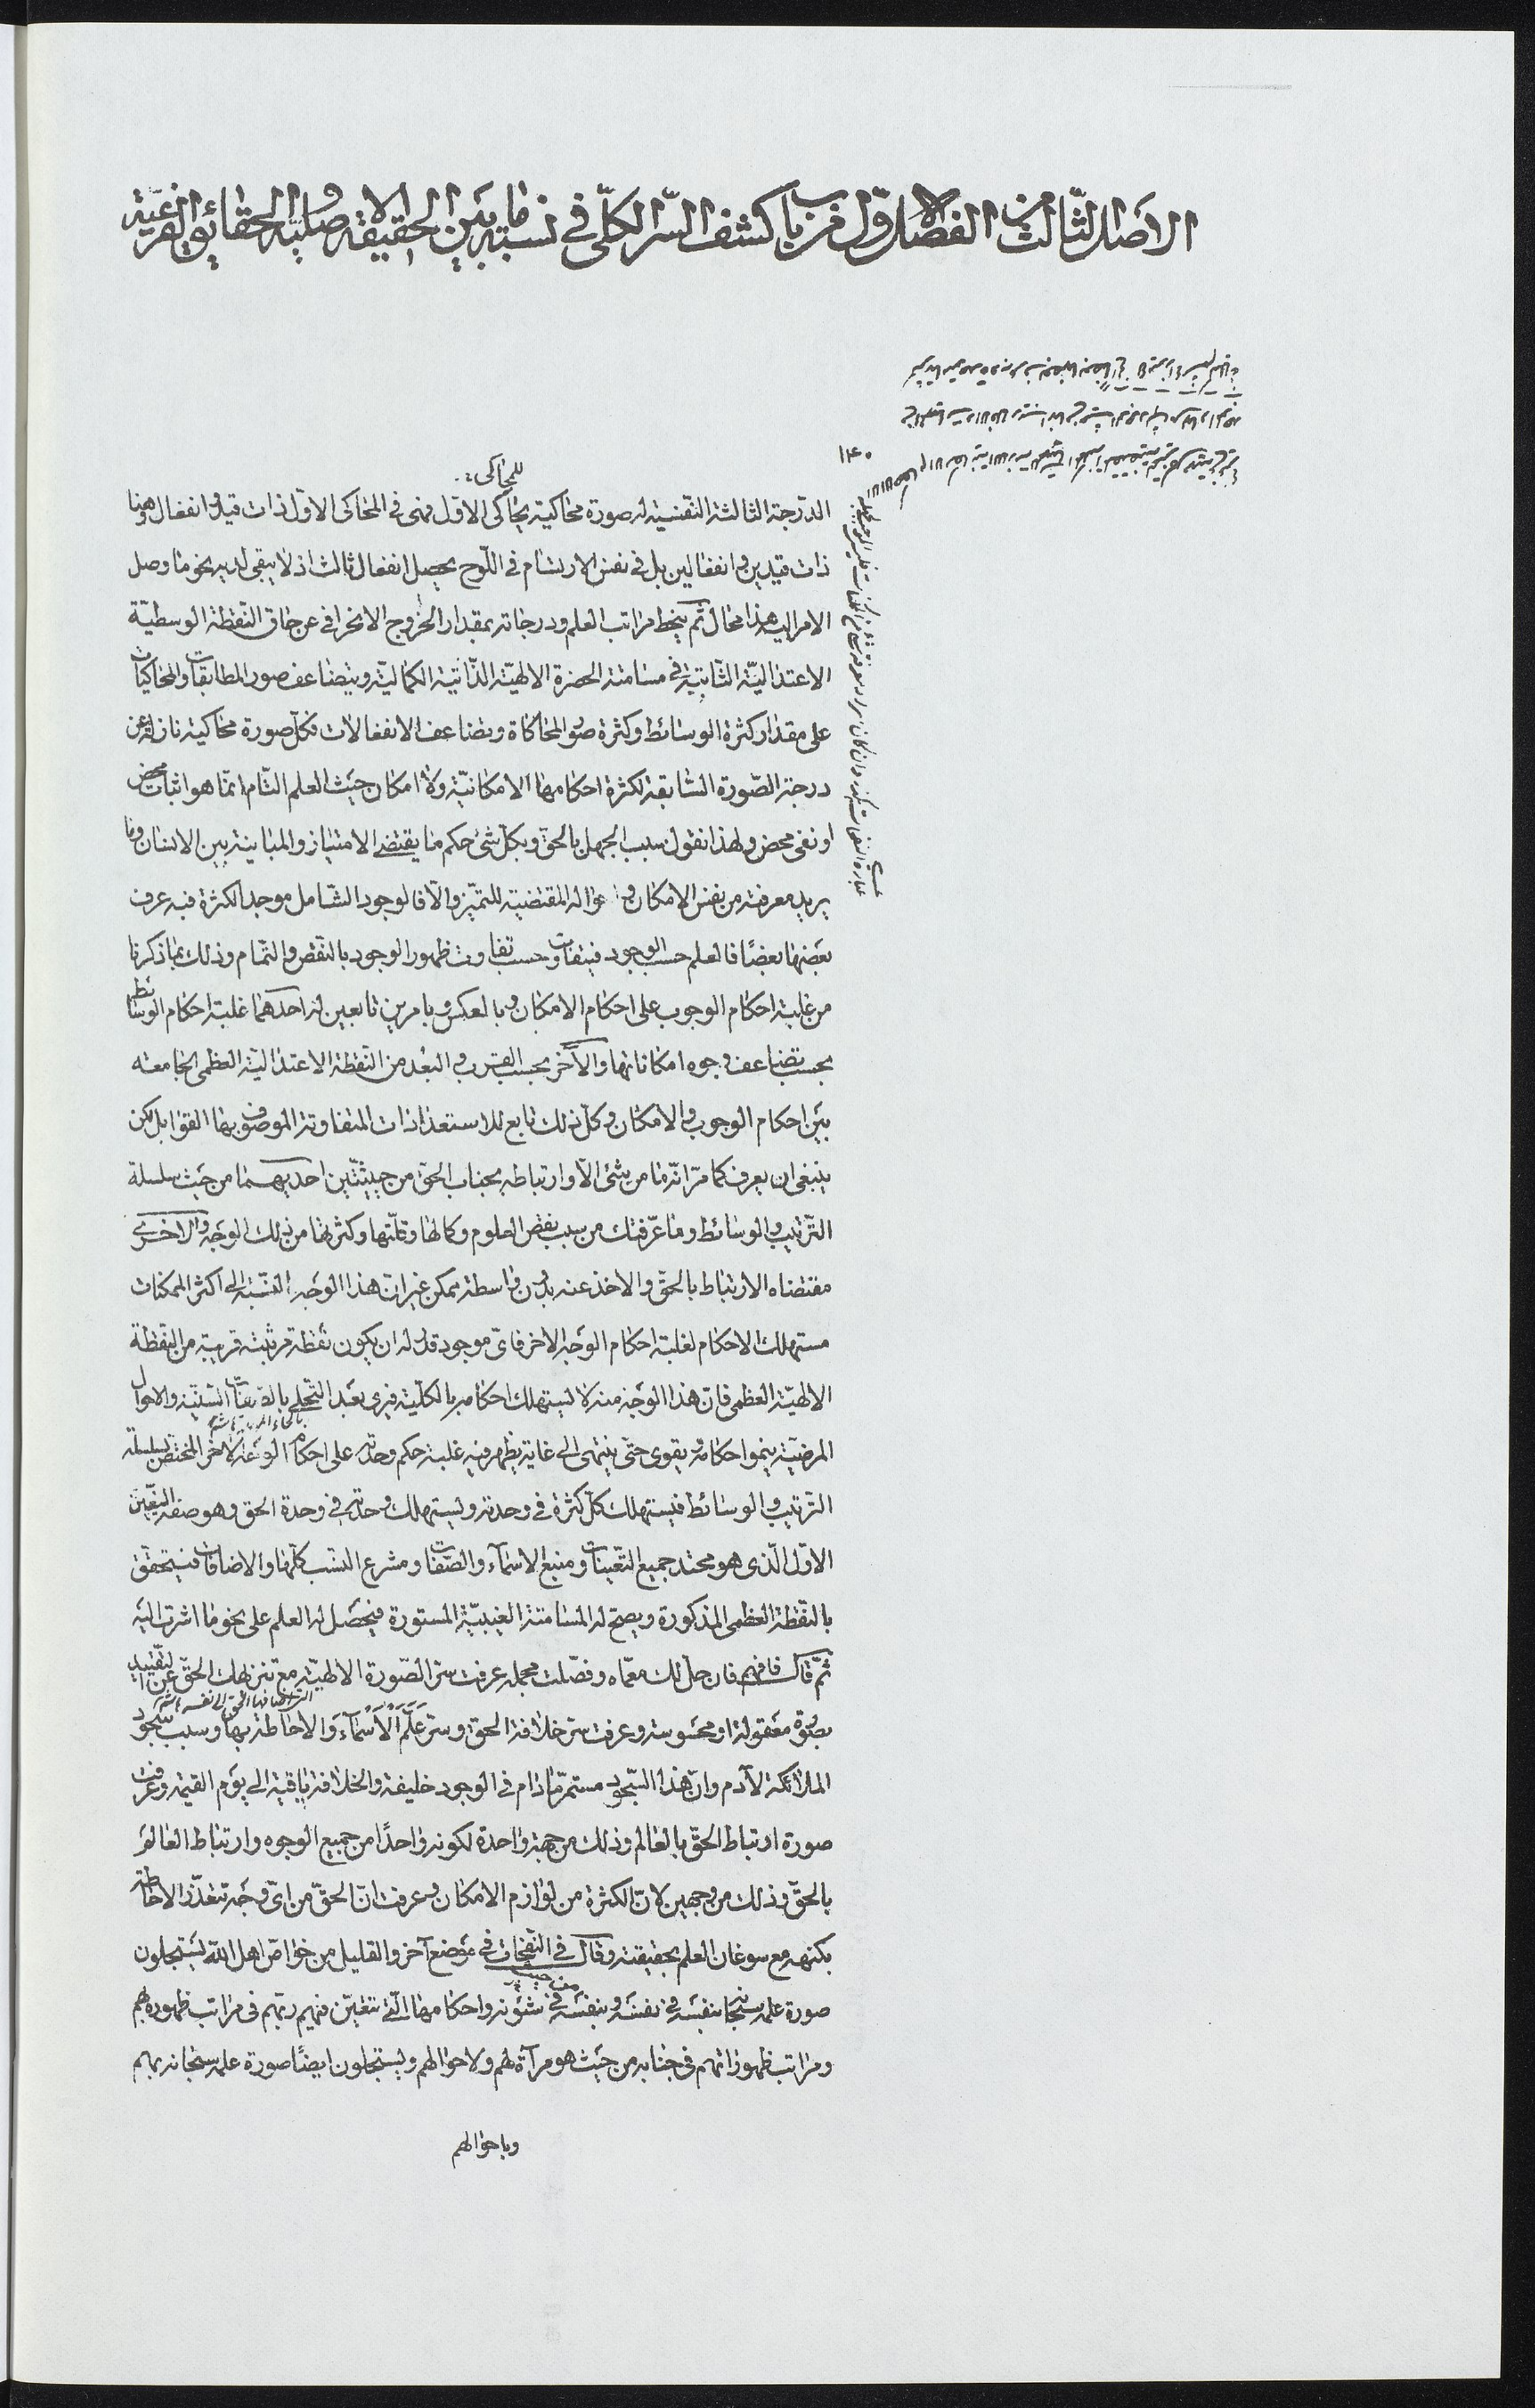 الأصل الثالث من الفصل الاول من باب كشف السّر الكلّى فى نسبة ما بين الحقيقة الاصلية و الحقائق الفرعيّة
١٤٠
للمحاكى
الدّرجة الثالثة النّفسية له صورة محاكية يحاكى الاوّل فهى فى المحاكى الاوّل ذات قيد و انفعال وهنا
ذات قيدين و انفعالين بل فى نفس الارتسام فى اللّوح يحصل انفعال ثالث اذ لا يبقى لديه بنحو ما وصل
الامر اليه هذا محال ثمّ ينحط مراتب العلم ودرجاته بمقدار الخروج الانحرافى عن حاق النّقطة الوسطيّة
الاعتداليّة الثّابتة فى مسامتة الحضرة الالهيّة الذّاتية الكماليّة ويتضاعف صور المطابقات والمحاكيات
على مقدار كثرة الوسائط وكثرة صور المحاكاة وتضاعف الانفعالات فكلّ صورة محاكية نازلة عن
درجة الصّورة السّابقة لكثرة احكامها الامكانيّة ولا امكان حيث العلم التّام انّما هو اثبات محض
او نفى محض ولهذا نقول سبب الجهل بالحقّ وبكلّ شئ حكم ما يقتضى الامتياز والمباينة بين الانسان وما
يريد معرفته من نفس الامكان و المقتضية للتميّز والّا فالوجود الشّامل موجد الكثرة فبه عرف
بعضها بعضًا فالعلم حسب الوجود فيتفاوت حسب تفاوت ظهور الوجود بالنّقص والتّمام وذلك بما ذكرنا
من غلبة احكام الوجوب على احكام الامكان و بالعكس و بامرين تابعين له احدهما غلبة احكام الوسائط
بحسب تضاعف وجوه امكاناتها والآخر بحسب القرب و البُعد من النّقطة الاعتداليّة العظمى الجامعة
بين احكام الوجوب و الامكان و كلّ ذلك تابع للاستعدادات المتفاوتة الموصوف بها القوابل لكن
ينبغى ان يعرف كما مرّ انّه ما من شئ الّا و ارتباطه بجناب الحقّ من حيثيّتين احديهما من حيث سلسلة
التّرتيب والوسائط وما عرّفتك من سبب نقص العلوم وكمالها وقلّتها وكثرتها من ذلك الوجه والاخرى
مقتضاه الارتباط بالحقّ والاخذ عنه بدون واسطة ممكن غير انّ هذا الوجه بالنّسبة الى اكثر الممكنات
مستهلك الاحكام لغلبة احكام الوجه الاخر فاىّ موجود قدّر له ان يكون نقطة مرتبته قريبة من النّقطة
الالهيّة العظمى فانّ هذا الوجه منه لا يستهلك احكامه بالكلّية فيرى بعد التّجلى بالصّفات السّنيّة والاحوال
المرضيّة ينمو احكامه و يقوى حتى ينتهى الى غاية يظهر فيه غلبة حكم وحدته على احكام الوجه الاخر المختص بسلسلة
التّرتيب والوسائط فيستهلك كلّ كثرة فى وحدته ويستهلك وحدته فى وحدة الحق وهو صفة التّعيّن
الاوّل الّذى هو محتد جميع التّعيّنات ومنبع الاسمآء والصّفات ومشرع النّسب كلّها والاضافات فيتحقّق
بالنّقطة العظمى المذكورة ويصحّ له المسامتة الغيبيّة المستورة فيحصل له العلم على نحو ما اشرت اليه
ثمّ قال فافهم فان حلّ لك معمّاه وفصّلت مجمله عرفت سرّ الصّورة الالهيّة مع تنزيهك الحقّ عن التّقييد
بصورة معقولة او محسوسة وعرفت سرّ خلافة الحق و سرّ علّم الأسماءَ والاحاطة بها وسبب سجود
الملائكة لآدم وانّ هذا السّجود مستمرّ ما دام فى الوجود خليفة والخلافة باقية الى يوم القيمة وعرفت
صورة ارتباط الحقّ بالعالم وذلك من جهة واحدة لكونه واحدًا من جميع الوجوه وارتباط العالم
بالحقّ وذلك من وجهين لانّ الكثرة من لوازم الامكان وعرفت انّ الحقّ من اىّ وجه تتعذّر الاحاطة
بكنهه مع سوغان العلم بحقيقته وقال فى النّفحات فى موضع آخر والقليل من خواصّ اهل الله يستجلون
صورة علمه سبحانه بنفسه فى نفسه وبنفسه فى شئونه واحكامها الّتى تتعيّن فيهم ربّهم فى مراتب ظهوره بهم
ومراتب ظهوراتهم فى جنابه من حيث هو مرآة لهم ولاحوالهم ويستجلون ايضًا صورة علمه سبحانه بهم
وباحوالهم